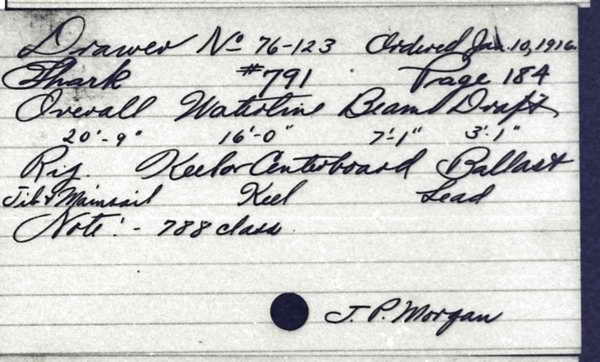 Drawer No 76-123 Ordered Jan. 10, 1916.
Shark #791 Page 184
Overall Waterline Beam Draft
20'-9" 16'-0" 7'-1" 3'-1"
Rig. Keel or Centerboard Ballast
Jib & Mainsail Keel Lead
Note:- 788 class
J. P. Morgan